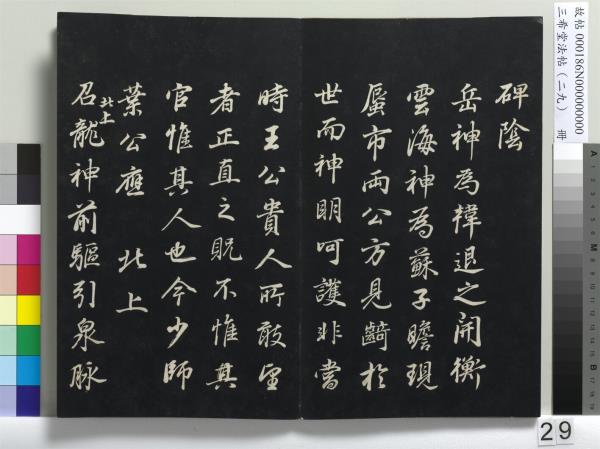 故帖 000186N000000000
三希堂法帖（二九） 冊
碑陰
岳神為韓退之開衡
雲海神為蘇子瞻現
蜃市兩公方見齮於
世而神明呵護非當
時王公貴人所敢望
者正直之貺不惟其
官惟其人也今少師
葉公應 北上
北上
召龍神前驅引泉脈
29
A
M
B